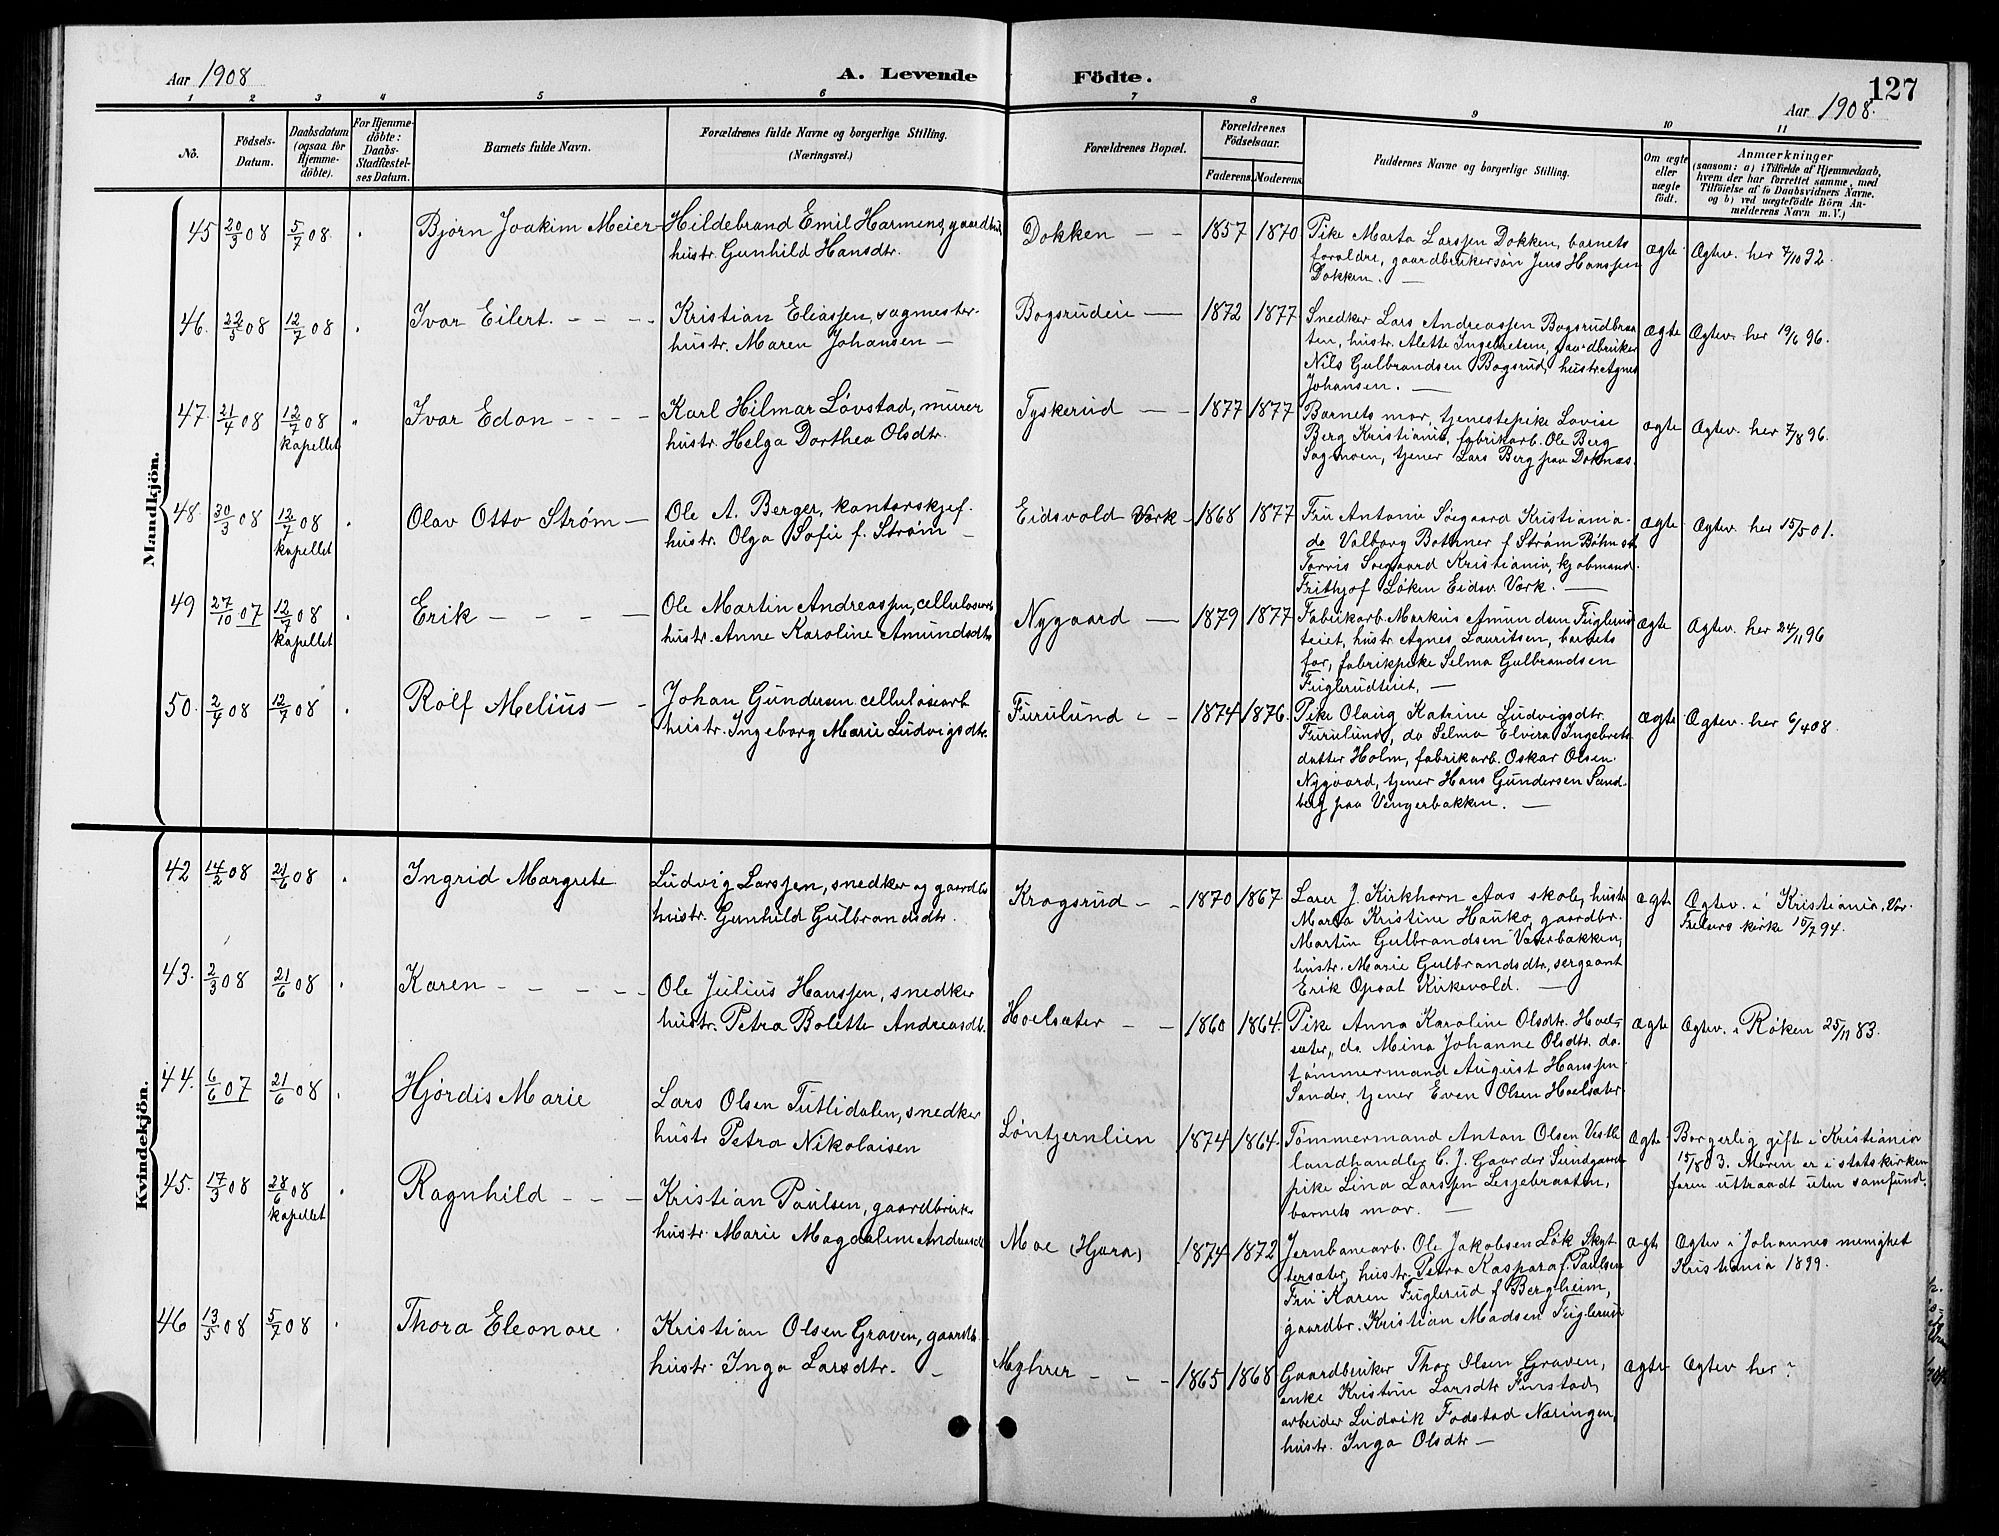 Aar 1908
A. Levende Födte.
127
Aar 1908.
1 2 3 4 5 6 7 8 9 10 11
No.
Födsels-
Datum.
Daabsdatum
(ogsaa for
Hjemme-
döbte).
For Hjemme-
döbte:
Daabs-
Stadfæstel-
ses Datum.
Barnets fulde Navn.
Forældrenes fulde Navne og borgerlige Stilling.
(Næringsvei.)
Forældrenes Bopæl.
Forældrenes
Födselsaar.
Faderens. Moderens.
Faddernes Navne og borgerlige Stilling.
Om ægte
eller
uægte
födt.
Anmærkninger
(saasom: a) i Tilfælde af Hjemmedaab,
hvem der har forrettet samme, med
Tilföielse af to Daabsvidners Navne.
og b) ved uægtefödte Börn An-
melderens Navn m. V.)
Mandkjön.
45 20/3 08 5/7 08. Bjørn Joakim Meier
Hildebrand Emil Harmens, gaardbr.
hustr. Gunhild Hansdtr.
Dokken - - 1857 1870
Pike Marta Larssen Dokken, barnets
foraldre, gaardbrukersøn Jens Hanssen
Dokken. —
ægte Ægtev. her 7/10 92.
46. 22/5 08 12/7 08 Ivar Eilert. - - -
Kristian Eliassen, sagmester
hustr. Maren Johansen —
Bøgsrudeie — 1872 1877
Snedker Lars Andreassen Bøgsrudbraa
ten, hustr. Alette Ingebretsen, gaardbruker
Nils Gulbrandsen Bøgsrud, hustr. Agnes
Johansen. —
ægte Ægtev. her 19/6 96.
47 21/4 08 12/7 08 kapellet Ivar Edon - - -
Karl Hilmar Løvstad, murer
hustr. Helga Dorthea Olsdtr.
Tyskerud — - 1877 1877
Barnets mor, tjenestepike Lovise
Berg Kristiania, fabrikarb. Ole Berg
Sagmoen, tjener Lars Berg paa Doknæs.
ægte Ægtev. her 7/8 96.
48. 30/3 08 12/7 08 kapellet Olav Otto Strøm —
Ole A. Berger, kontorskjef.
hustr. Olga Sofie f. Strøm —
Eidsvold Værk - 1868 1877
Fru Antonie Søegaard Kristiania.
do Valborg Bothner f Strøm Böhn st
Torvis Søegaard Kristiania, kjøbmand
Frithjof Løken Eidsv. Værk. —
ægte Ægtev. her 15/5 01.
49 27/10 07 12/7 08 kapellet Erik - - - -
Ole Martin Andreassen, cellulosearb
hustr. Anne Karoline Amundsdtr
Nygaard — 1879 1877
Fabrikarb. Markus Amundsen Fuglerud
teiet, hustr Agnes Lauritsen, barnets
far, fabrikpike Selma Gulbrandsen
Fuglerudteiet. —
ægte Ægtev. her 24/11 96
50. 2/4 08 12/7 08. Rolf Melius - -
Johan Gundersen cellulosearb
hustr. Ingeborg Marie Ludvigsdtr.
Furulund - - 1874 1876.
Pike Olaug Katrine Ludvigsdtr.
Furulund, do Selma Elvira Ingebrets
datter Holm, fabrikarb. Oskar Olsen
Nygaard, tjener Hans Gundersen Sand
berg paa Vengerbakken. —
ægte Ægtev. her 6/4 08.
Kvindekjön.
42 14/2 08 21/6 08 Ingrid Margrete
Ludvig Larssen, snedker og gaardbr
hustr. Gunhild Gulbrandsdtr.
Krogsrud - - 1870 1867
Lærer J. Kirkhorn Aas skole, hustr
Marta Kristine Hauko, gaardbr.
Martin Gulbrandsen Væserbakken,
hustr. Marie Gulbrandsdtr, sergeant
Erik Opsat Kirkevold. —
ægte Ægtev. i Kristiania, Vor
Frelsers kirke 15/7 94.
43. 2/3 08 21/6 08 Karen - - - - -
Ole Julius Hanssen, snedker
hustr. Petra Bolette Andreasdt.
Hoelsæter - - 1860 1864.
Pike Anna Karoline Olsdtr. Hoel-
sæter, do. Mina Johanne Olsdtr. do.
tømmermand August Hanssen
Sander, tjener Even Olsen Hoelsæter
ægte Ægtev. i Røken 25/11 83.
44. 6/6 07 21/6 08 Hjørdis Marie
Lars Olsen Tutlidalen, snedker
hustr Petra Nikolaisen
Løntjernlien 1874 1864.
Tømmermand Anton Olsen Vestli
landhandler C. J. Gaarder Sundgaard
pike Lina Larssen Lesjebraaten,
barnets mor. —
ægte Borgerlig gifte i Kristiania
15/8 03. Moren er i statskirken
faren uttraadt uten samfund.
45. 17/3 08 28/6 08 kapellet Ragnhild - - -
Kristian Paulsen, gaardbruker
hustr. Marie Magdalene Andreasdt
Moe (Hjera) 1874 1872
Jernbanearb. Ole Jakobsen Løk Skyt
tersæter, hustr. Petra Kaspara f. Paulsen
Fru Karen Fuglerud f Bergheim,
gaardbr. Kristian Madsen Fuglerud
ægte Ægtev i Johannes menighet
Kristiania 1899.
46 13/5 08 5/7 08 Thora Eleonore
Kristian Olsen Graven, gaardb.
hustr. Inga Larsdtr. -
Myhrer - - - 1865 1868
Gaardbruker Thor Olsen Graven,
enke Kristine Larsdtr Finstad,
arbeider Ludvik Fodstad Næringen,
hustr. Inga Olsdtr —
ægte Ægtev her ?